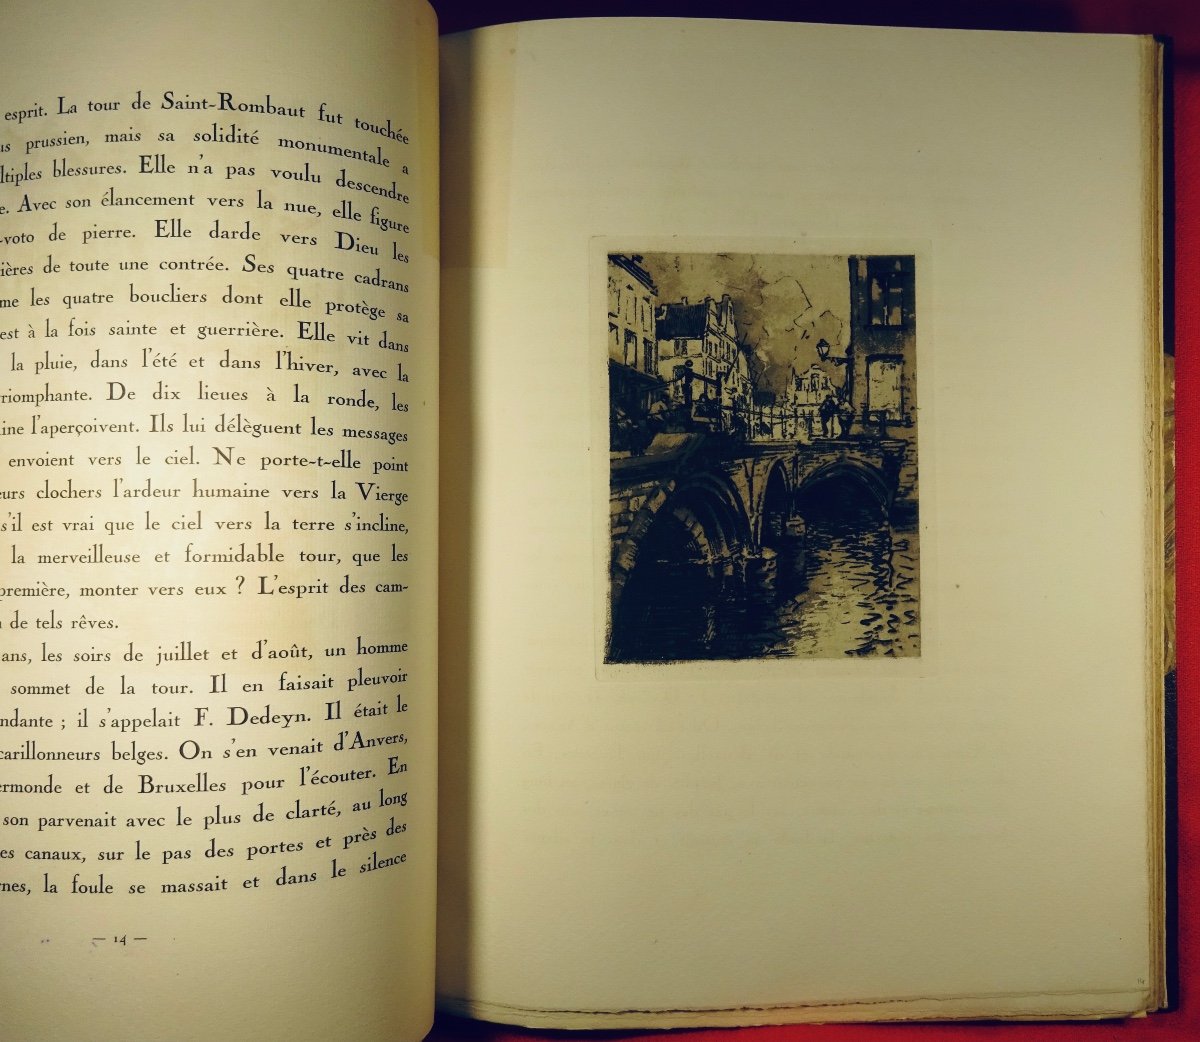 esprit. La tour de Saint-Rombaut fut touchée
prussien, mais sa solidité monumentale a
ltiples blessures. Elle n'a pas voulu descendre
e. Avec son élancement vers la nue, elle figure
-voto de pierre. Elle darde vers Dieu les
ières de toute une contrée. Ses quatre cadrans
me les quatre boucliers dont elle protège sa
est à la fois sainte et guerrière. Elle vit dans
la pluie, dans l'été et dans l'hiver, avec la
riomphante. De dix lieues à la ronde, les
ine l'aperçoivent. Ils lui délèguent les messages
envoient vers le ciel. Ne porte-t-elle point
eurs clochers l'ardeur humaine vers la Vierge
s'il est vrai que le ciel vers la terre s'incline,
la merveilleuse et formidable tour, que les
première, monter vers eux ? L'esprit des cam-
de tels rêves.
ans, les soirs de juillet et d'août, un homme
sommet de la tour. Il en faisait pleuvoir
ndante ; il s'appelait F. Dedeyn. Il était le
carillonneurs belges. On s'en venait d'Anvers,
ermonde et de Bruxelles pour l'écouter. En
son parvenait avec le plus de clarté, au long
es canaux, sur le pas des portes et près des
rnes, la foule se massait et dans le silence
— 14 —
14